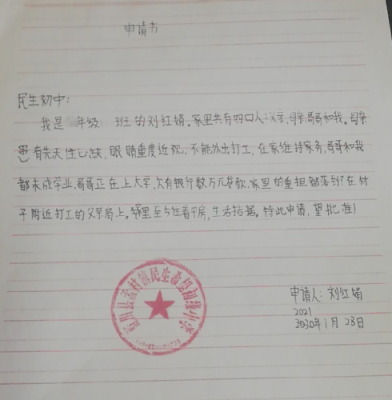 申请书
民生初中：
我是 年级 班的刘红娟。家里共有四口人：父亲，母亲，哥哥和我。母亲
患有先天性心缺，眼睛重度近视，不能外出打工，在家维持家务，哥哥和我
都未成学业，哥哥正在上大学，欠有银行数万元贷款，家里的重担都落到了在村
子附近打工的父亲肩上。 至今住着平房，生活拮据。特此申请，望批准！
申请人：刘红娟
2021
2030年1月28日